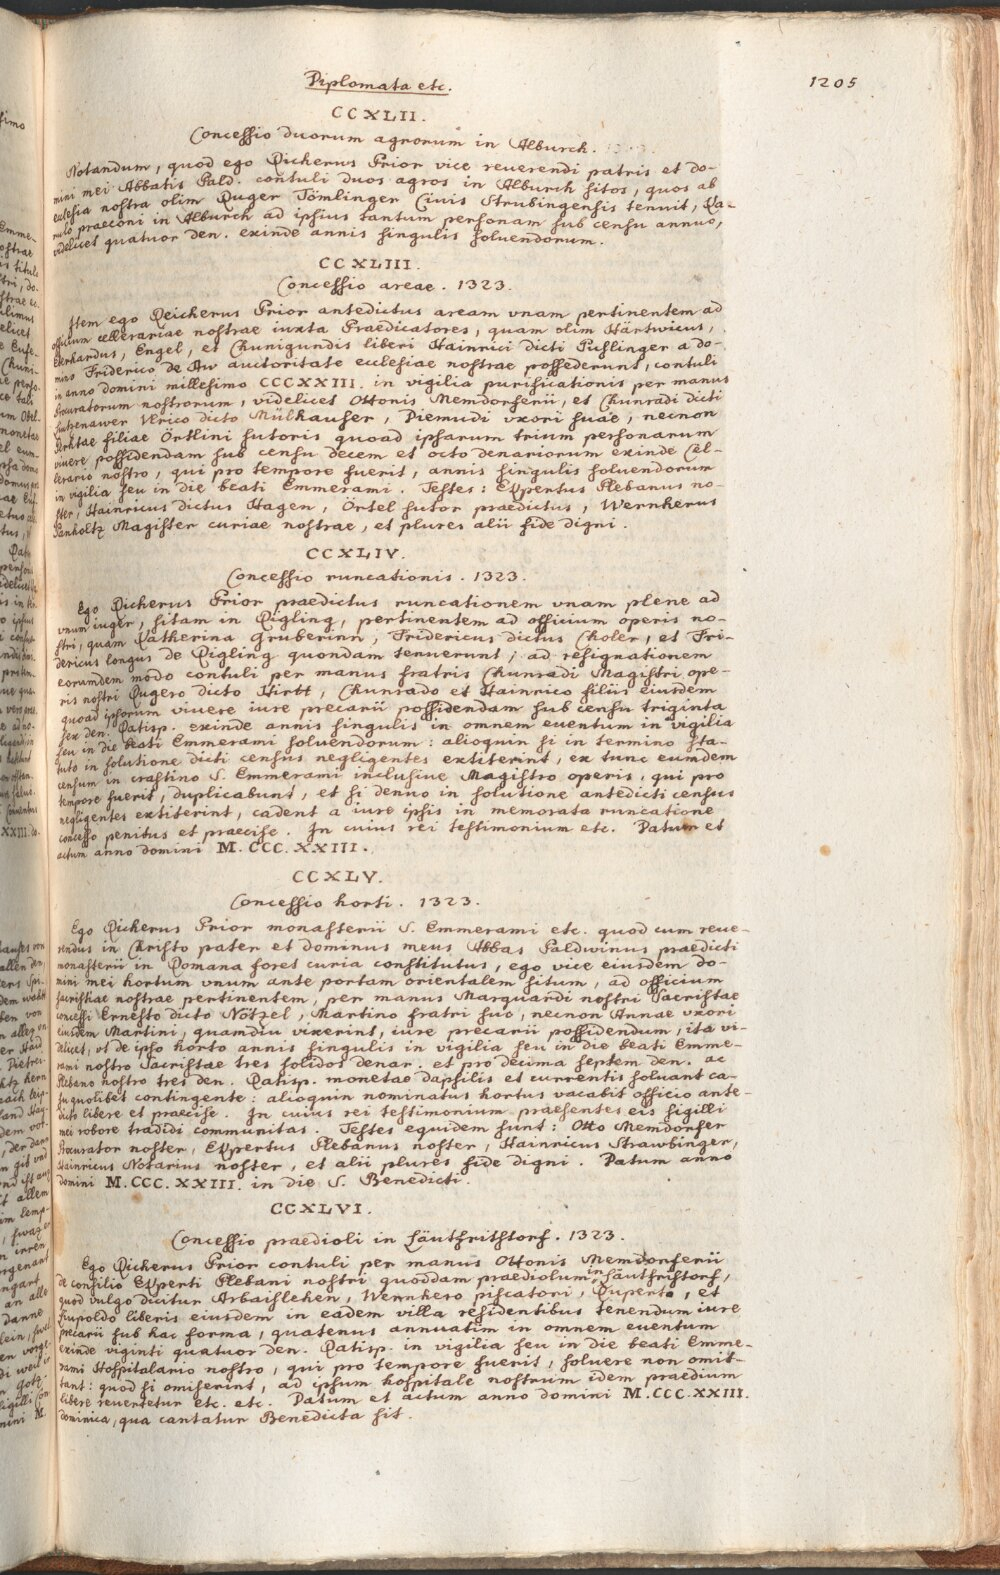 Diplomata etc.
1205
CCXLII.
Concessio duorum agrorum in Alburch.
Notandum, quod ego Richerus Prior vice reuerendi patris et do-
mini mei Abbatis Bald. contuli duos agros in Alburch sitos, quos ab
eclesia nostra olim Ruger Tömlinger Ciuis Strubingensis tenuit, Ka-
rulo praeconi in Alburch ad ipsius tantum personam sub censu annuo,
videlicet quatuor den. exinde annis singulis soluendorum.
CCXLIII.
Concessio areae. 1323.
Item ego Reicherus Prior antedictus aream vnam pertinentem ad
officium cellerariae nostrae iuxta Praedicatores, quam olim Härtwicus,
Eberhardus, Engel, et Chunigundis liberi Hainrici dicti Puslinger a do-
mino Friderico de Aw auctoritate ecclesiae nostrae possederunt, contuli
in anno domini millesimo CCCXXIII. in vigilia purificationis per manus
Procuratorum nostrorum, videlicet Ottonis Memdorferii, et Chunradi dicti
Vlrico dicto Mülhauser, Diemudi vxori suae, necnon
filiae Örtlini sutoris quoad ipsarum trium personarum
viuere possidendam sub censu decem et octo denariorum exinde Cel-
lerario nostro, qui pro tempore fuerit, annis singulis soluendorum
in vigilia seu in die beati Emmerami. Testes: Ekpertus Plebanus no-
ster, Hainricus dictus Hagen, Örtel sutor praedictus, Wernherus
Panholtz Magister curiae nostrae, et plures alii fide digni.
CCXLIV.
Concessio runcationis. 1323.
Ego Richerus Prior praedictus runcationem vnam plene ad
vnum iuger, sitam in Rigling, pertinentem ad officium operis no-
stri, quam Katherina Gruberinn, Fridericus dictus Choler, et Fri-
dericus longus de Rigling quondam tenuerunt, ad resignationem
eorundem modo contuli per manus fratris Chunradi Magistri ope-
ris nostri Rugero dicto Hirtt, Chunrado et Hainrico filiis eiusdem
quoad ipsorum viuere iure precarii possidendam sub censu triginta
sex den. Ratisp. exinde annis singulis in omnem euentum in vigilia
seu in die beati Emmerami soluendorum: alioquin si in termino sta-
tuto in solutione dicti census negligentes extiterint, ex tunc eumdem
censum in crastino S. Emmerami inclusiue Magistro operis, qui pro
tempore fuerit, duplicabunt, et si denuo in solutione antedicti census
negligentes extiterint, cadent a iure ipsis in memorata runcatione
concesso penitus et praecise. In cuius rei testimonium etc. Datum et
actum anno domini M.CCC.XXIII.
CCXLV.
Concessio horti. 1323.
Ego Richerus Prior monasterii S. Emmerami etc. quod cum reue-
rendus in Christo pater et dominus meus Abbas Baldwinus praedicti
monasterii in Romana foret curia constitutus, ego vice eiusdem do-
mini mei hortum vnum ante portam orientalem situm, ad officium
sacristiae nostrae pertinentem, per manus Marquardi nostri Sacristae
concessi Ernesto dicto Nötzel, Martino fratri suo, necnon Annae vxori
eiusdem Martini, quamdiu vixerint, iure precarii possidendum, ita vi-
delicet, vt de ipso horto annis singulis in vigilia seu in die beati Emme-
rami nostro Sacristae tres solidos denar. et pro decima septem den. ac
Plebano nostro tres den. Ratisp. monetae dapsilis et currentis soluant ca-
su quolibet contingente: alioquin nominatus hortus vacabit officio ante-
dicto libere et praecise. In cuius rei testimonium praesentes eis sigilli
mei robore tradidi communitas. Testes equidem sunt: Otto Memdorfer
Procurator noster, Ekpertus Plebanus noster, Hainricus Strawbinger,
Hainricus Notarius noster, et alii plures fide digni. Datum anno
domini M.CCC.XXIII. in die S. Benedicti.
CCXLVI.
Concessio praedioli in Läutfritstorf. 1323.
Ego Richerus Prior contuli per manus Ottonis Memdorferii
de consilio Ekperti Plebani nostri quoddam praediolum in Läutfristorf,
quod vulgo dicitur Arbaislehen, Wernhero piscatori, Ruperto, et
Liupoldo liberis eiusdem in eadem villa residentibus tenendum iure
precarii sub hac forma, quatenus annuatim in omnem euentum
exinde viginti quatuor den. Ratisp. in vigilia seu in die beati Emme-
rami Hospitalario nostro, qui pro tempore fuerit, soluere non omit-
tant: quod si omiserint, ad ipsum hospitale nostrum idem praedium
libere reuertetur etc. etc. Datum et actum anno domini M.CCC.XXIII.
dominica, qua cantatur Benedicta sit.